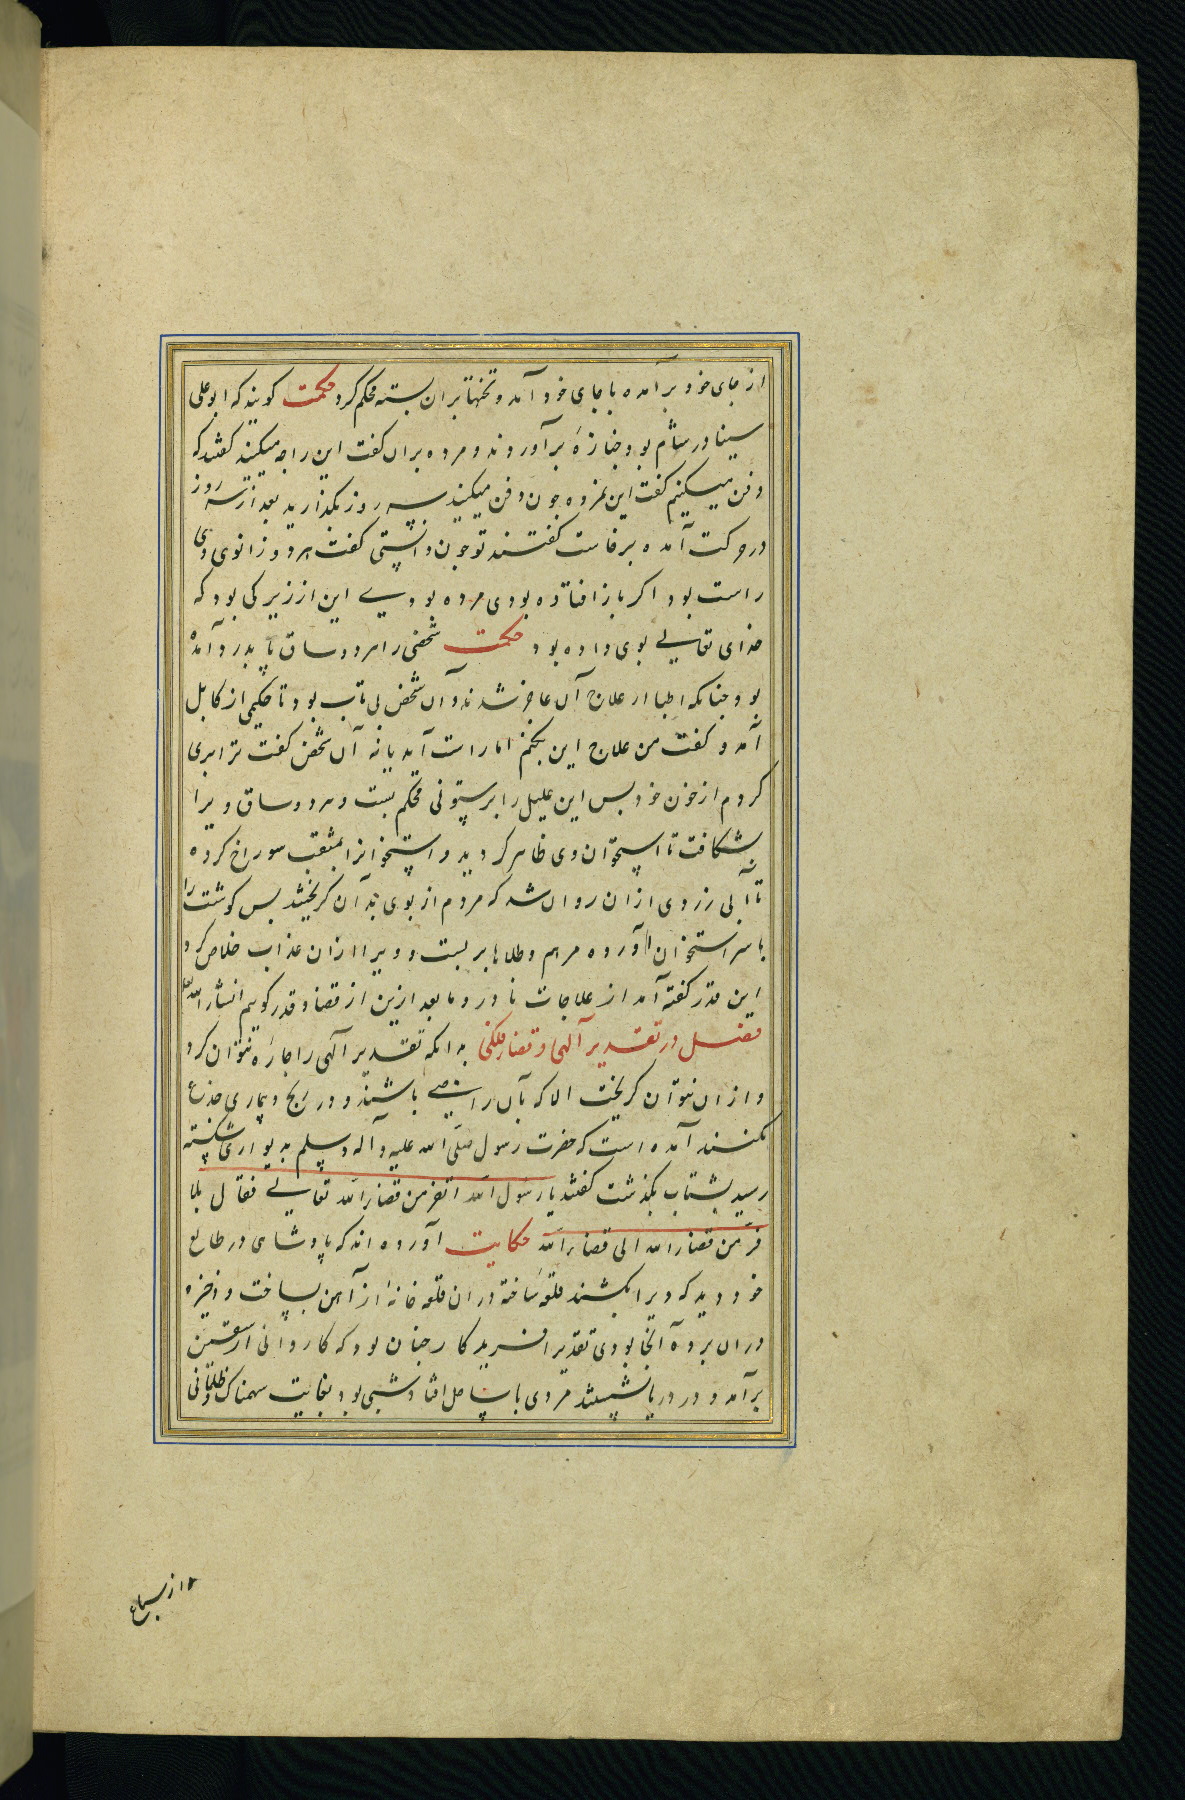 از جای خود برآمده باجای خود آمد و تختها بران بسته محکم کرد حکمت کویند که ابوعلی
سینا در شام بود جنازهٔ برآوردند و مرده بران کفت این را چه میکنید کفتند که
دفن میکنیم کفت این نمرده چون دفن میکنید سه روز بکذارید بعد از سه روز
در حرکت آمده برخاست کفتند تو چون دانستی کفت هردو زانوی وی
راست بود اکر باز افتاده بودی مرده بودی این از زیرکی بود که
خدای تعالی بوی داده بود حکمت شخصی را هردو ساق پا بدرد آمده
بود چنانکه اطبا از علاج آن عاجز شدند و آن شخص بی تاب بود تا حکیمی از کابل
آمد و کفت من علاج این بکنم اما راست آید یا نه آن شخص کفت ترا بری
کردم از خون خود پس این علیل را بر ستونی محکم بست و هردو ساق ویرا
بشکافت تا استخوان وی ظاهر کردید و استخوانرا بمثقب سوراخ کرده
تا آبی زرد وی ازان روان شد که مردم از بوی بد آن کریختند پس کوشت را
با سر استخوان آورده مرهم و طلاها بر بست و ویرا ازان عذاب خلاص کرد
این قدر کفته آمد از علاجات نادر و ما بعد ازین از قضا و قدر کوییم انشاء الله
فصل در تقدیر آلهی و قضاء فلکی بدانکه تقدیر آلهی را چاره نتوان کرد
و ازان نتوان کریخت الا که بآن راضی باشند و در رنج و بیماری جذع
نکنند آمده است که حضرت رسول صلی الله علیه و آله وسلم بدیواری شکسته
رسید بشتاب بکذشت کفتند یا رسول الله اتفر من قضاء الله تعالی فقال بلا
فر من قضاء الله الی قضاء الله حکایت آورده اند که پادشاهی در طالع
خود دید که ویرا بکشند قلعه ساخته دران قلعه خانهٔ از آهن بساخت و ذخیره
دران برده آنجا بودی تقدیر آفریدکار چنان بود که کاروانی از سقسین
برآمد و در دریا نشستند مردی با ساحل افتاد شبی بود بغایت سهمناک و ظلمانی